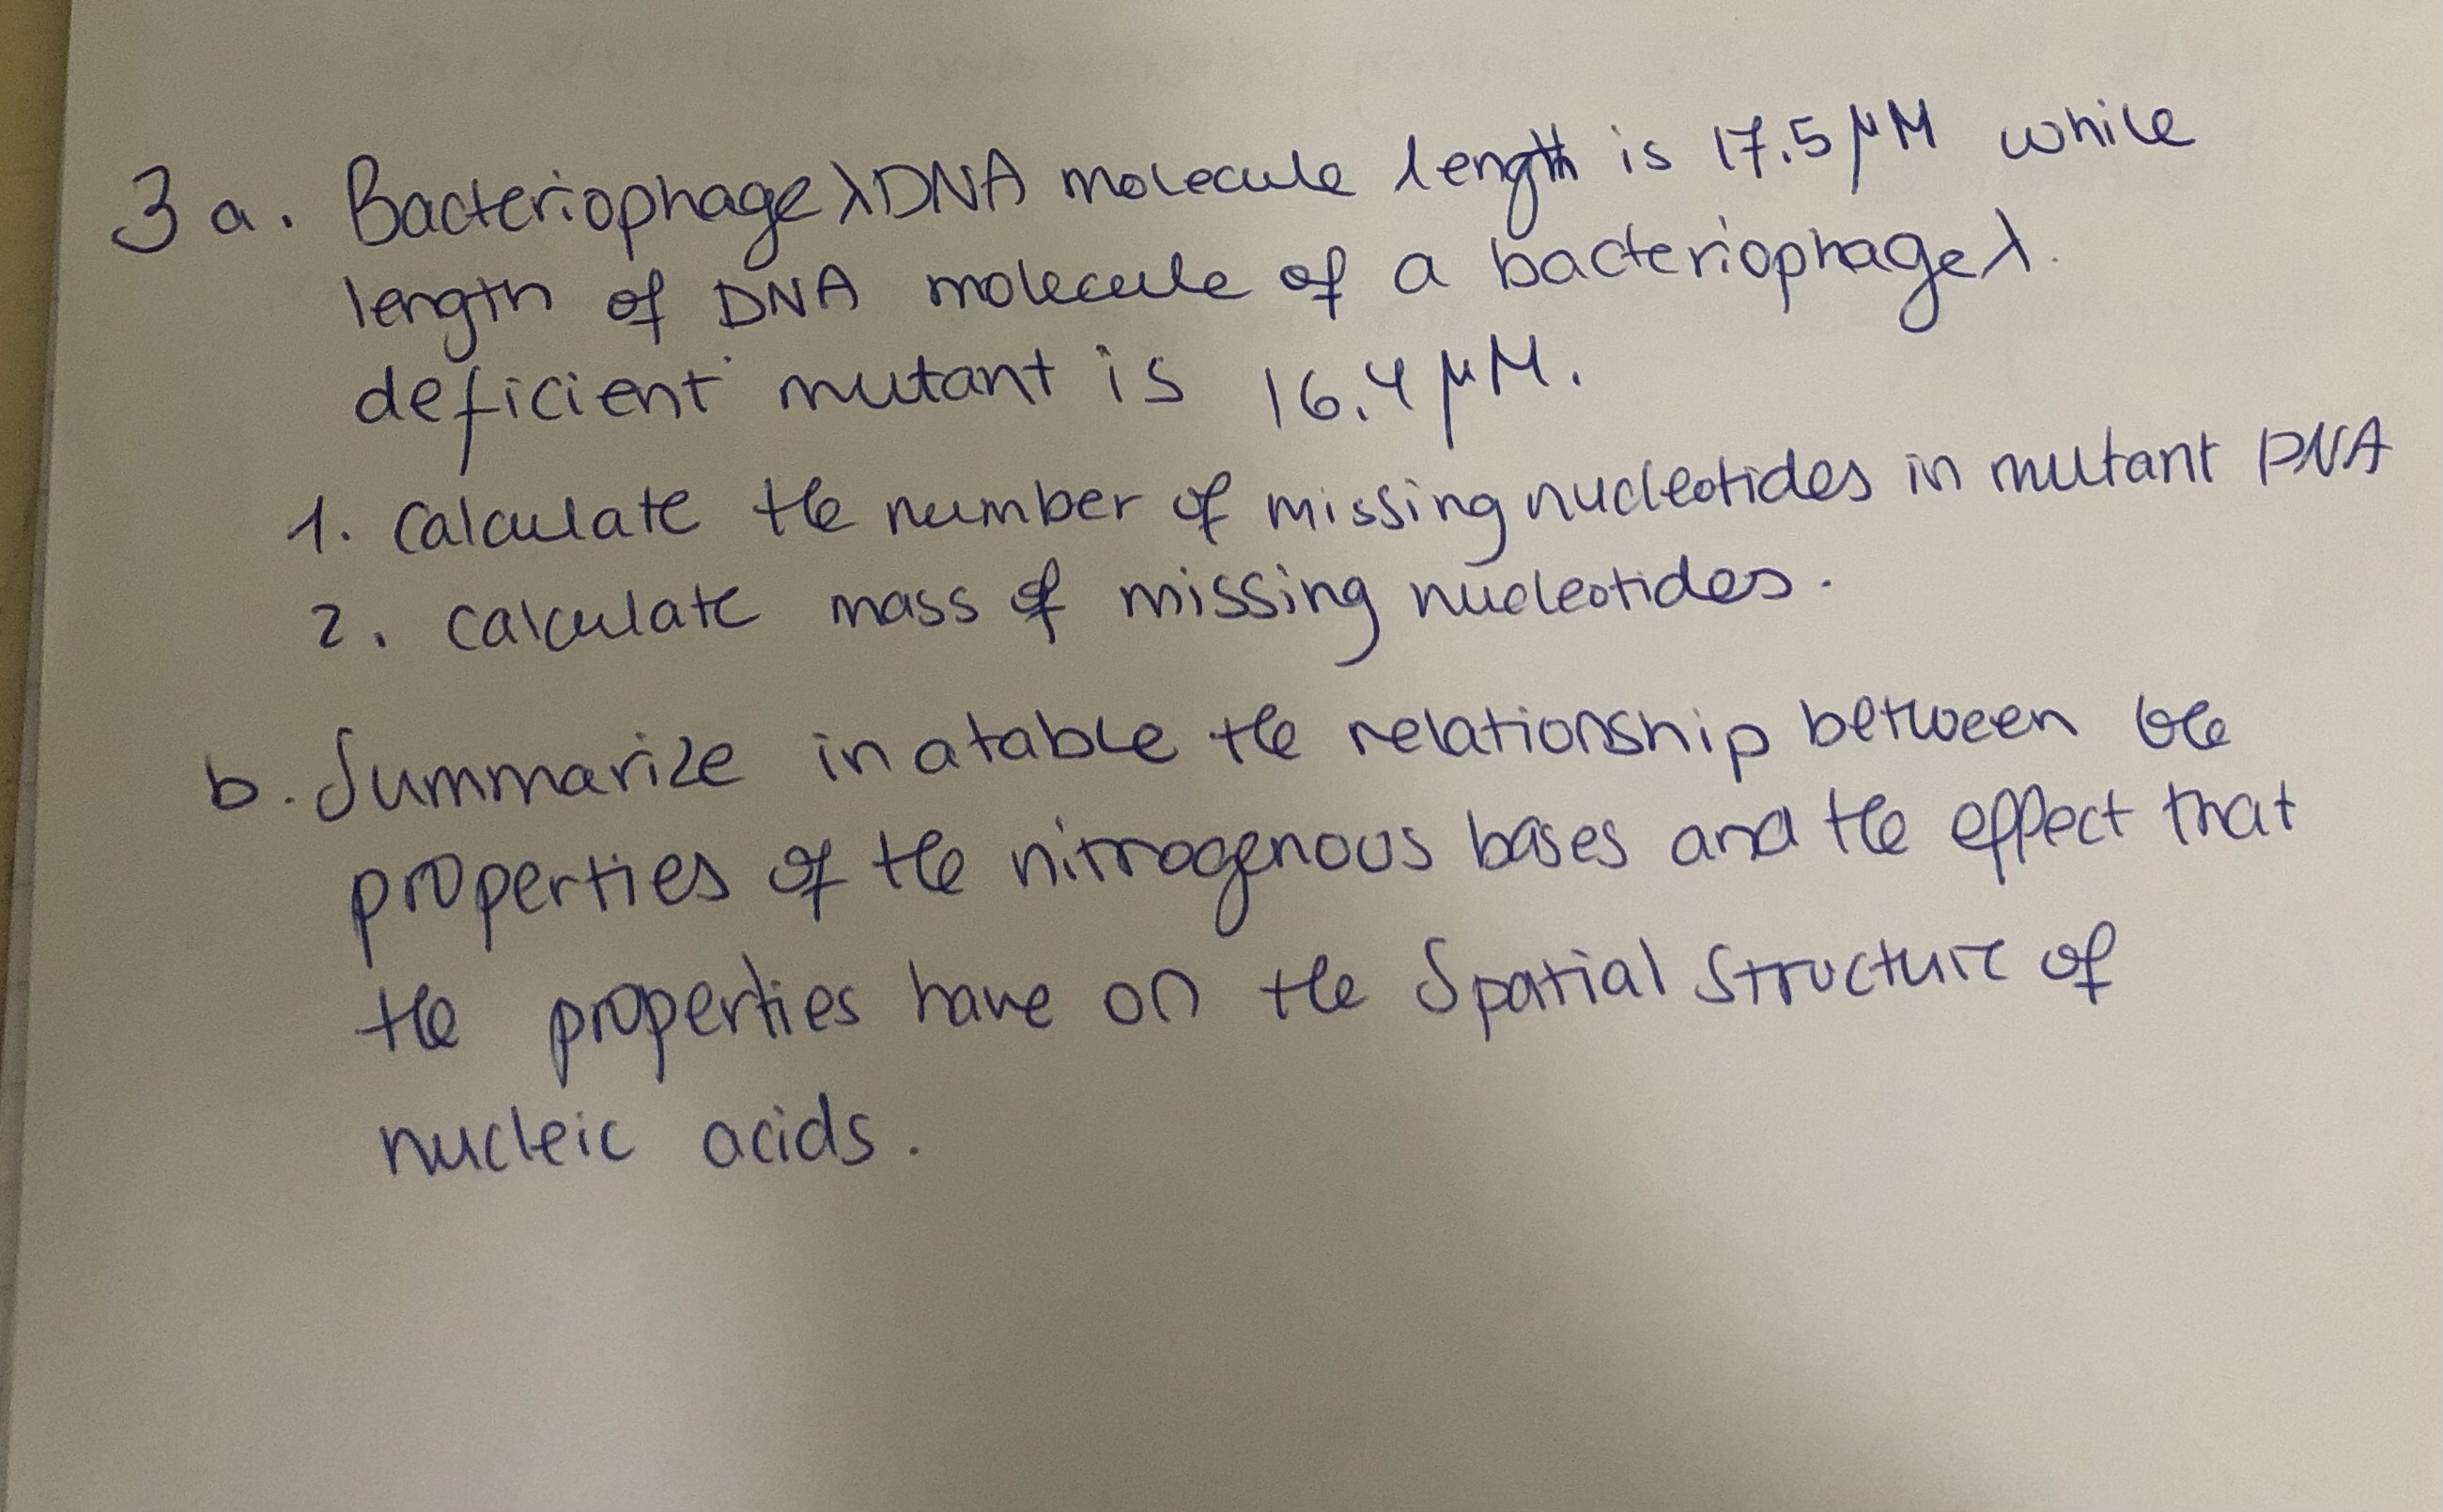 3 a. Bacteriophage λDNA molecule length is 17.5 μM while
length of DNA molecule of a bacteriophage λ.
deficient mutant is 16.4 μM.
1. calculate the number of missing nucleotides in mutant DNA
2. calculate mass of missing nucleotides.
b. Summarize in a table the relationship between the
properties of the nitrogenous bases and the effect that
the properties have on the Spatial Structure of
nucleic acids.